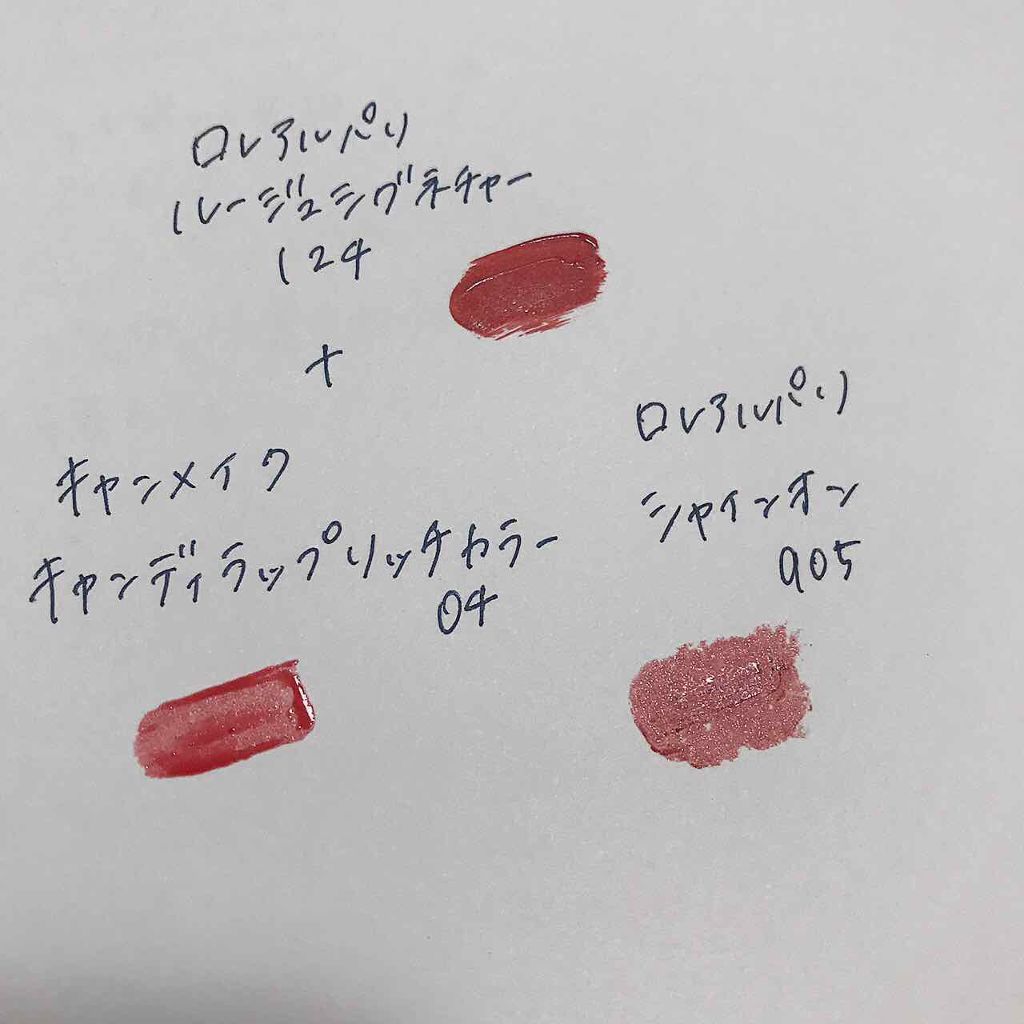 ロレアルパリ
ルージュシグネチャー
124
+
キャンメイク
キャンディラップリッチカラー
04
ロレアルパリ
シャインオン
905